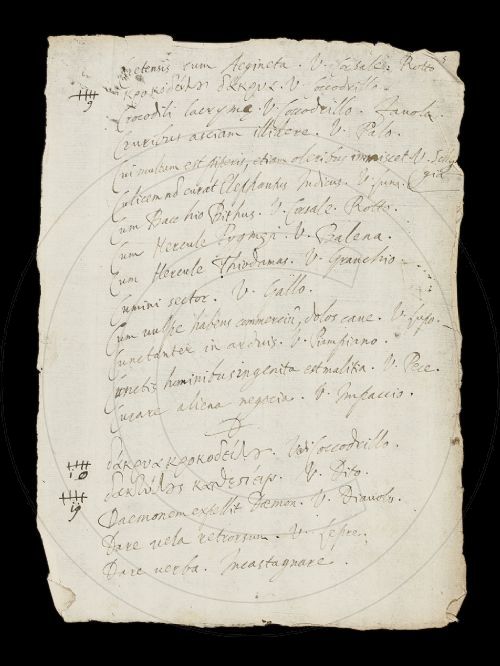 Cretensis cum Aegineta. V. Casale. Rotto
9 κροκοδείλȣ δάκρυα. V. Coccodrillo.
Crocodili lacrymę. V. Coccodrillo. Favola.
Cruribus asciam illidere. V. Palo.
Cui multum est piperis, etiam oleribus immiscet V.
Culicem nō curat Elephantus Indicus. V.
Cum Baccho Bithus. V. Casale. Rotto.
Cum Hercule V. Balena.
Cum Hercule Thiodamas. V. Granchio.
Cumini sector. V. Gallo.
Cum vulpe habens commerciū, dolos cave. V. Lupo.
Cunctanter in arduis. V.
Cunctis hominibus ingenita est malitia. V. Pece.
Curare aliena negocia. V. Impaccio.
D
10 δάκρυα κροκοδείλȣ. V. Coccodrillo.
19 V. Dito.
Daemonem expellit Daemon. V. Diavolo.
Dare vela retrorsum. V. Lepre.
Dare verba. Incastagnare.